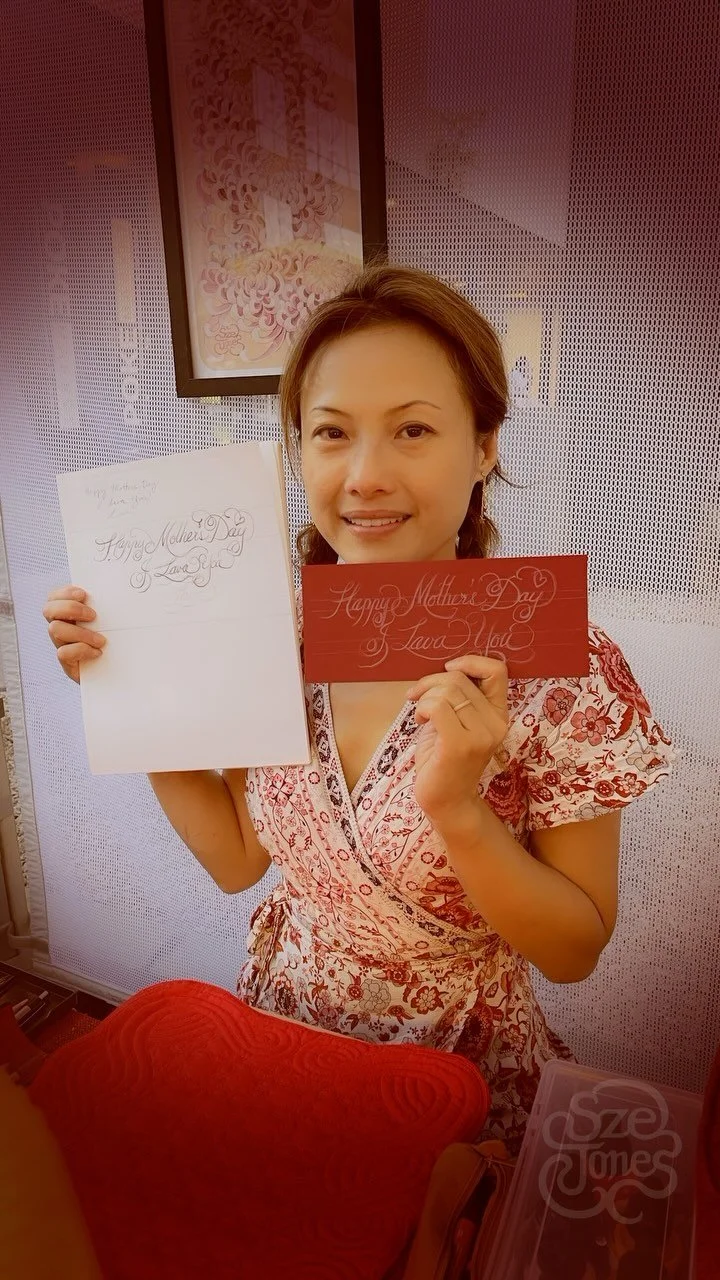 POKE
Happy Mother's Day
Lava You!
Happy Mother's Day
I Lava You
Happy Mother's Day
I Lava You
Sze
Jones